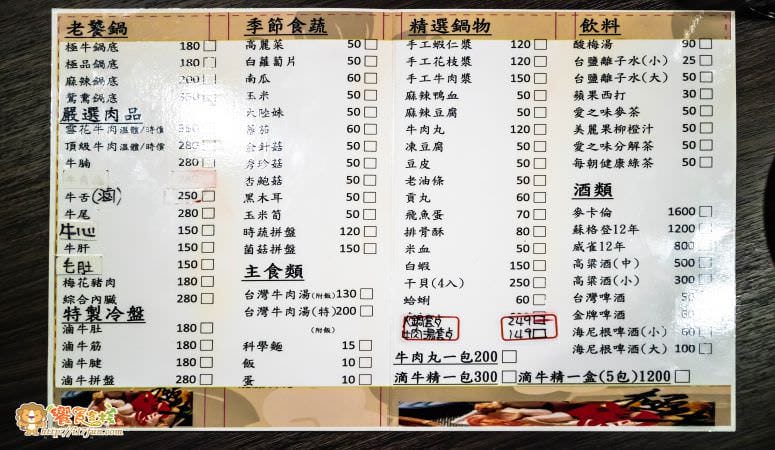 老饕鍋
極牛鍋底 180
極品鍋底 180
麻辣鍋底 200
鴛鴦鍋底 350
嚴選肉品
雪花牛肉溫體/時價 350
頂級牛肉溫體/時價 280
牛腩 280
牛舌(滷) 250
牛尾 280
牛心 150
牛肝 150
毛肚 150
梅花豬肉 180
綜合內臟 280
特製冷盤
滷牛肚 180
滷牛筋 180
滷牛腱 180
滷牛拼盤 280
季節食蔬
高麗菜 50
白蘿蔔片 50
南瓜 60
玉米 50
大陸妹 50
茼蒿 60
金針菇 50
秀珍菇 50
杏鮑菇 50
黑木耳 50
玉米筍 50
時蔬拼盤 120
菌菇拼盤 150
主食類
台灣牛肉湯(附飯) 130
台灣牛肉湯(特) 200
(附飯)
科學麵 15
飯 10
蛋 10
精選鍋物
手工蝦仁漿 120
手工花枝漿 120
手工牛肉漿 150
麻辣鴨血 50
麻辣豆腐 50
牛肉丸 120
凍豆腐 50
豆皮 50
老油條 50
貢丸 50
飛魚蛋 70
排骨酥 80
米血 50
白蝦 150
干貝(4入) 250
蛤蜊 60
鍋套点 249
牛肉湯套点 149
牛肉丸一包200
滴牛精一包300 滴牛精一盒(5包)1200
飲料
酸梅湯 90
台鹽離子水(小) 25
台鹽離子水(大) 50
蘋果西打 30
愛之味麥茶 50
美麗果柳橙汁 50
愛之味分解茶 50
每朝健康綠茶 50
酒類
麥卡倫 1600
蘇格登12年 1200
威雀12年 800
高粱酒(中) 500
高粱酒(小) 300
台灣啤酒 50
金牌啤酒 60
海尼根啤酒(小) 60
海尼根啤酒(大) 100